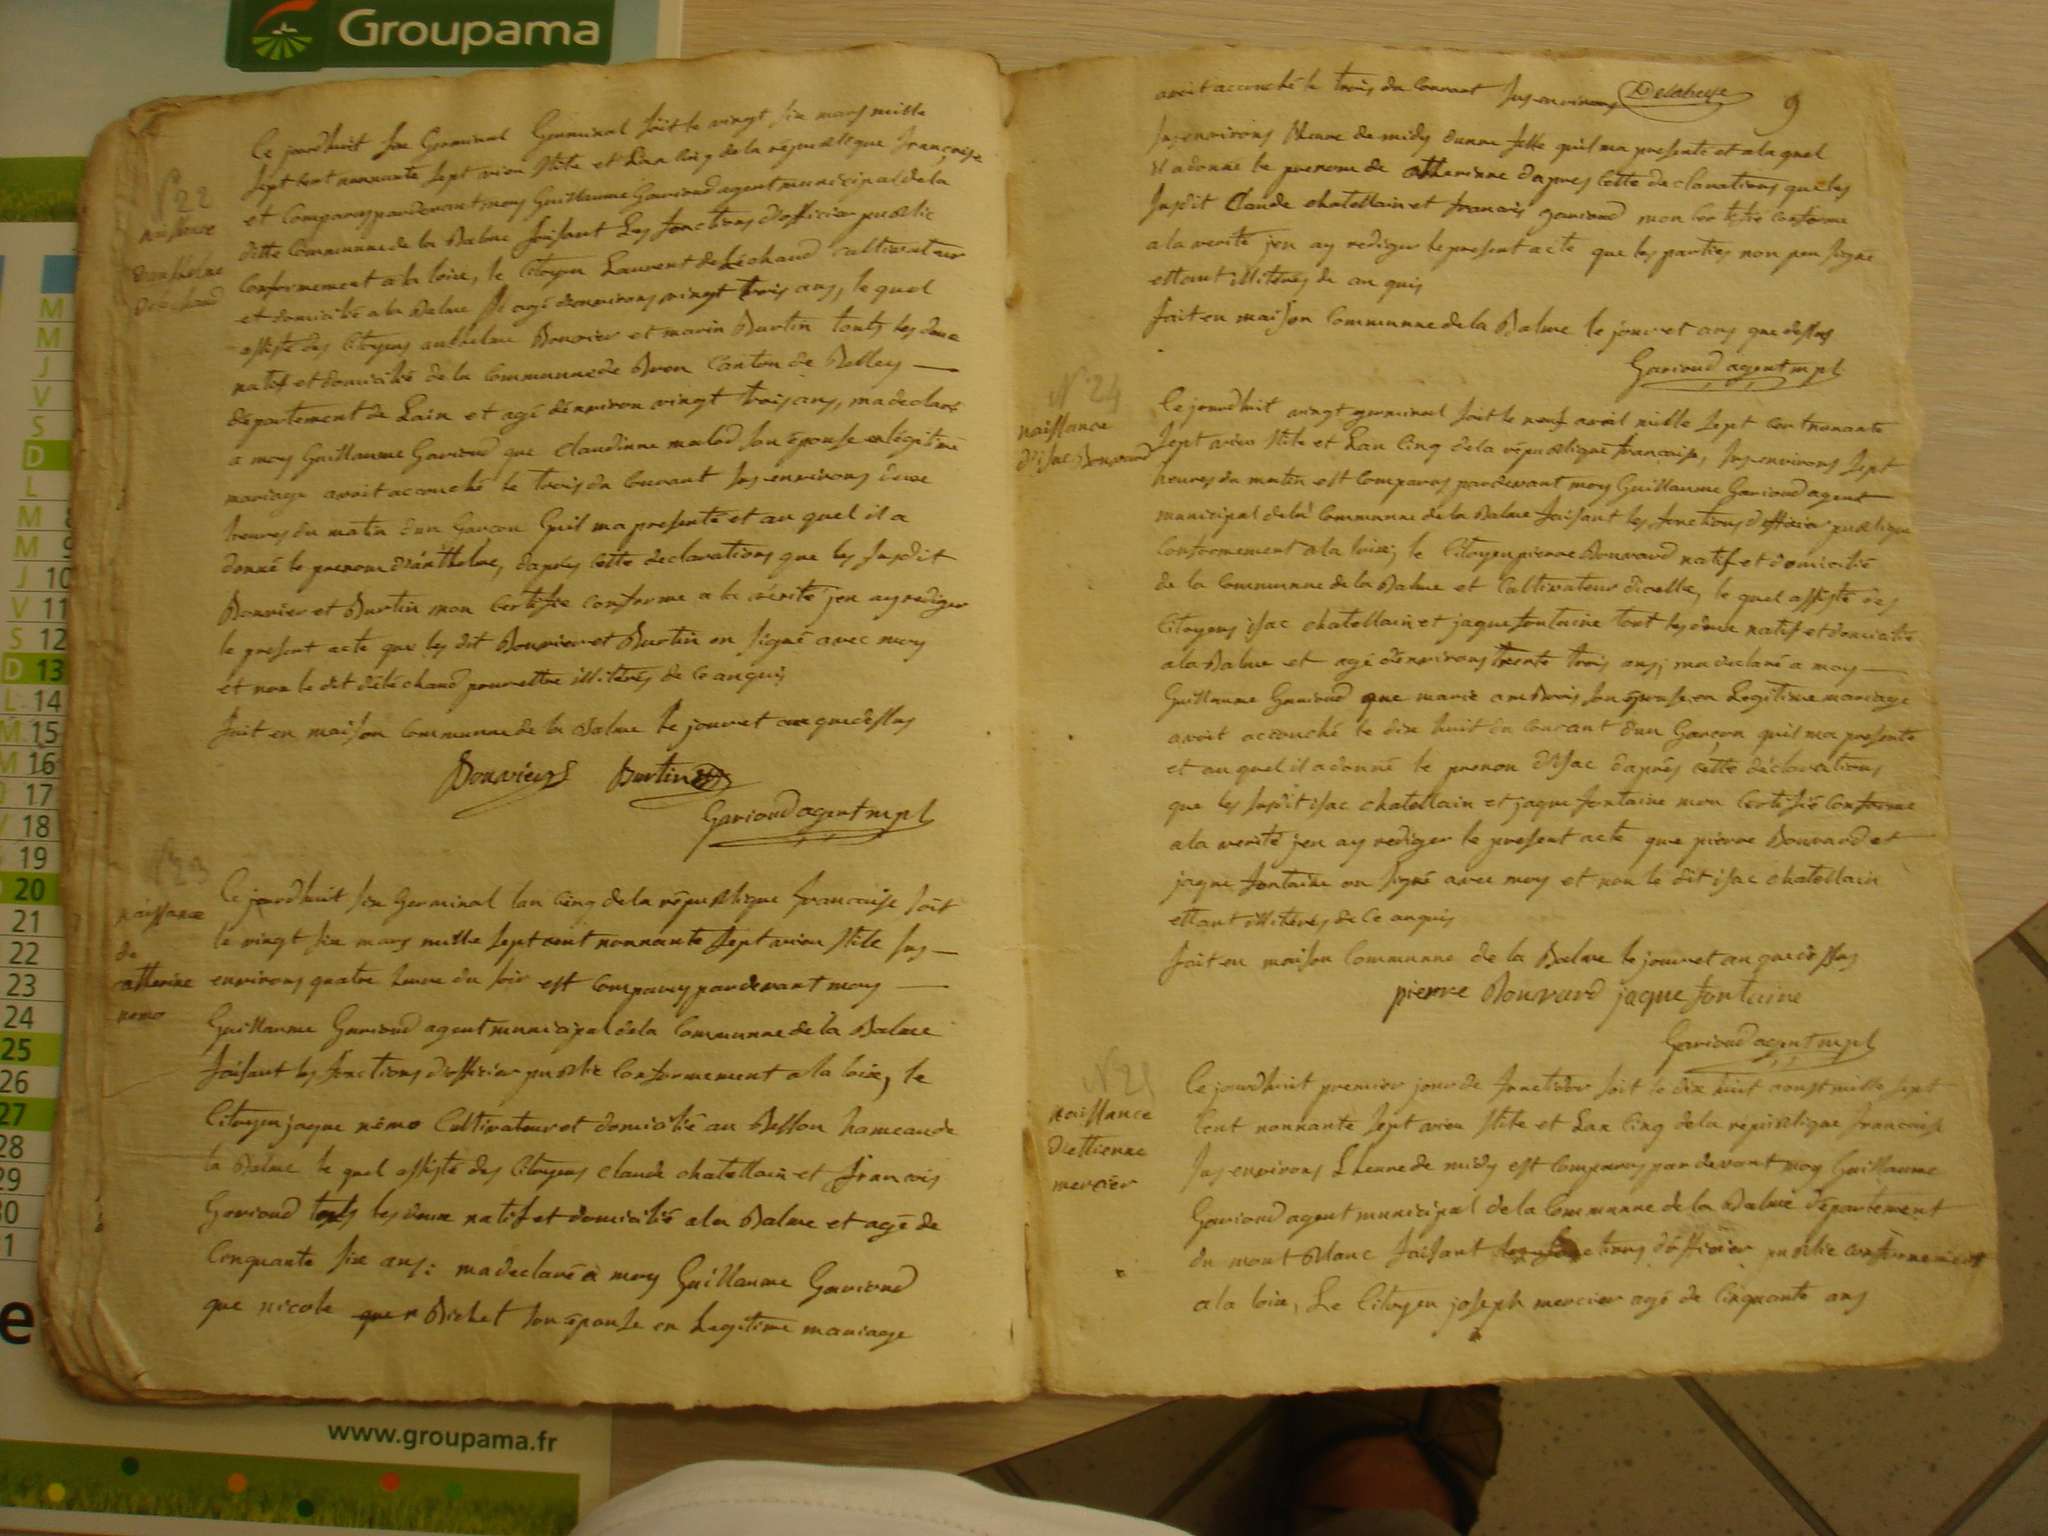 Groupama
N° 22
naissance
danthelme
Delechaud
Ce jourdhuit six Germinal Germinal soit le vingt six mars mille
sept cent nonnante sept vieu stile et Lan cinq de la république françoise
et comparus pardevant moy Guillaume Garioud agent municipal de la
ditte Communne de la Balme faisant Les fonctions dofficier public
Conformement a la loix, le Citoyen Laurent deléchaud cultivateur
et domicilié a la Balme agé denvirons vingt trois ans, le quel
assisté des Citoyens anthelme Bouvier et marin Burtin touts les deux
natif et domicilié de la Communne de Bron Canton de Belley
département de Lain et agé dénviron vingt trois ans, ma declaré
a moy Guillaume Garioud que Claudinne malod son épouse en légitime
mariage avoit accouché le trois du Courant sus environs deux
heures du matin dun Garçon quil ma presenté et au quel il a
donné le prenom dánthelme, daprés cette declarations que les susdit
Bouvier et Burtin mon Certifié conforme a la vérité jen ay rediger
le present acte que les dit Bouvier et Burtin on signé avec moy
et non le dit déléchaud pour ettre illitérés de ce anquis
fait en maison Communne de la Balme le jour et an que dessus
Bouvier Burtin
Garioud agent mpl
N° 23
naissance
de
catherine
nemo
Ce jourdhuit six Germinal lan cinq de la république francaise soit
le vingt six mars mille sept cent nonnante sept vieu stile sus
environs quatre heure du soir est comparus pardevant moy
Guillaume Garioud agent municipal de la Communne de la Balme
faisant les fonctions dofficier public Conformement a la loix, le
Citoyen jaque némo Cultivateur et domicilié au Besson hameau de
la Balme le quel assisté des Citoyens claude chatellain et francois
Garioud touts les deux natif et domicilié a la Balme et agé de
Cinquante six ans: ma declaré a moy Guillaume Garioud
que nicole que Bichet son épouse en Legitime mariage
avoit accouché le trois du Courant sus environs Delabeye 9
sus environs lheure de midy dunne fille quil ma presenté et a la quel
il a donné le prenom de catherinne daprès cette declarations que les
susdit Claude chatellain et francois garioud mon certifié conforme
a la verité jen ay rediger le present acte que les parties non peu signé
ettant illitérés de anquis
fait en maison Communne de la Balme le jour et ans que dessus
Garioud agent mpl
N° 24
naissance
disac Bouvard
Ce jourdhuit vingt germinal soit le neuf avril mille sept cent nonante
sept vieu stile et Lan Cinq de la république francoise, sus environs sept
heures du matin est comparus pardevant moy Guillaume Garioud agent
municipal de la Communne de la Balme faisant les fonctions dofficier publique
Conformement a la loix; le Citoyen pierre Bouvard natif et domicilié
de la Communne de la Balme et Cultivateur dicelle, le quel assisté des
Citoyens isac chatellain et jaque fontaine tout les deux natif et domicilié
a la Balme et agé denvirons trente trois ans; ma declaré a moy
Guillaume Garioud que marie ambrois son épouse en Legitime mariage
avoit accouché le dix huit du courant dun Garçon quil ma presenté
et au quel il a donné le prenon disac daprés cette déclarations
que les susdit isac chatellain et jaque fontaine mon Certifié Conforme
a la verité jen ay rediger le present acte que pierre Bouvard et
jaque fontaine on signé avec moy et non le dit isac chatellain
ettant illitérés de ce anquis
fait en maison Communne de la Balme le jour et an que dessus
pierre Bouvard jaque fontaine
Garioud agent mpl
N° 25
naissance
diettienne
mercier
Ce jourdhuit premier jour de fructidor soit le dix huit aoust mille sept
Cent nonnante sept vieu stile et Lan Cinq de la république francoise
sus environs Lheure de midy est comparus par devant moy Guillaume
Garioud agent municipal de la Communne de la Balme département
du mont Blanc faisant les fonctions dofficier public conformement
a la loix, Le Citoyen joseph mercier agé de Cinquante ans
M
M
J
V
S
D
L
M 8
M 9
J 10
V 11
S 12
D 13
L 14
M 15
M 16
17
18
19
20
21
22
23
24
25
26
27
28
29
30
e
www.groupama.fr